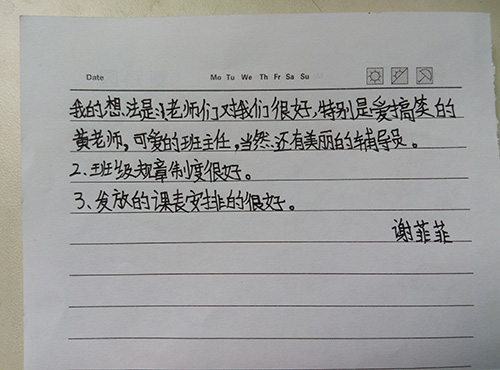 Date Mo Tu We Th Fr Sa Su
我的想法是:老师们对我们很好,特别是爱搞笑的
黄老师,可爱的班主任,当然还有美丽的辅导员。
2、班级规章制度很好。
3、发放的课表安排的很好。
谢菲菲